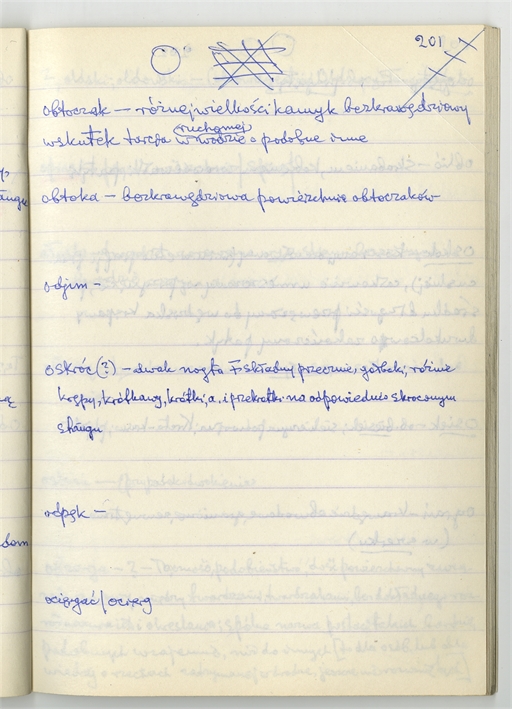 201
obtoczak — różnej wielkości kamyk bezkrawędziowy
wskutek tarcia w ruchomej wodzie o podobne inne
obtoka — bezkrawędziowa powierzchnia obtoczaków
odjim —
oskróc (?) — dwak nogta składny przecznie, gołbeki, różnie
kępy, krótkawy, krótki, a, i przekrótki na odpowiednio skróconym
sztangu
odpęk —
ocięgać / ocięg